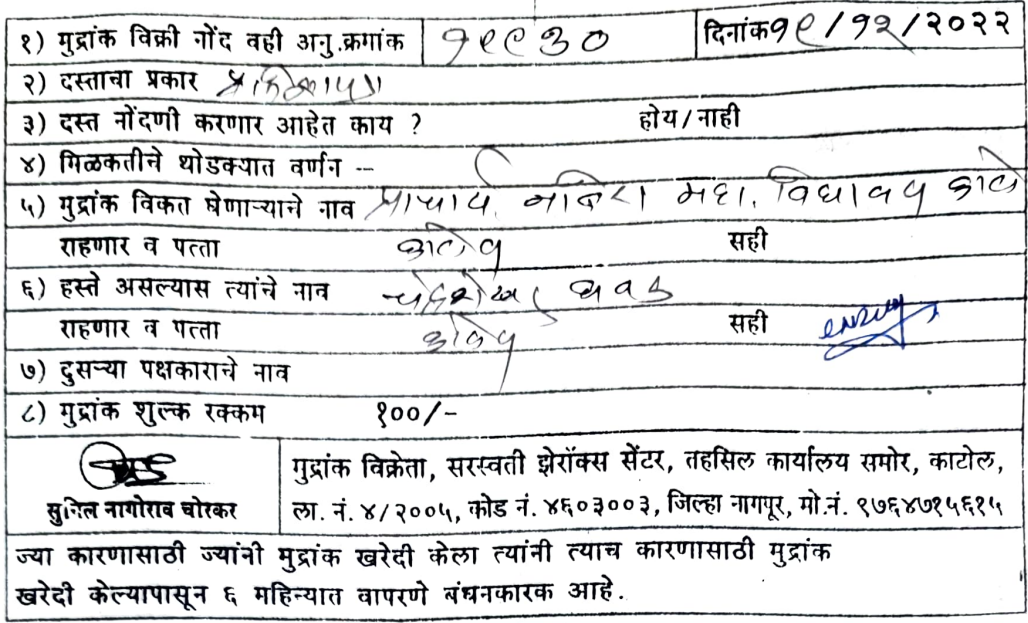 १) मुद्रांक विक्री नोंद वही अनु.क्रमांक १९९३० दिनांक१९/१२/२०२२
२) दस्ताचा प्रकार प्रतिज्ञापत्र
३) दस्त नोंदणी करणार आहेत काय ? होय/नाही
४) मिळकतीचे थोडक्यात वर्णन --
५) मुद्रांक विकत घेणाऱ्याचे नाव प्राचार्य, नबिरा महा. विद्यालय काटोल
राहणार व पत्ता काटोल सही
६) हस्ते असल्यास त्यांचे नाव चंद्रशेखर
राहणार व पत्ता काटोल सही
७) दुसऱ्या पक्षकाराचे नाव
८) मुद्रांक शुल्क रक्कम १००/-
मुद्रांक विक्रेता, सरस्वती झेरॉक्स सेंटर, तहसिल कार्यालय समोर, काटोल,
सुनिल नागोराव चोरकर ला. नं. ४/२००५, कोड नं. ४६०३००३, जिल्हा नागपूर, मो.नं. ९७६४७१५६१५
ज्या कारणासाठी ज्यांनी मुद्रांक खरेदी केला त्यांनी त्याच कारणासाठी मुद्रांक
खरेदी केल्यापासून ६ महिन्यात वापरणे बंधनकारक आहे.